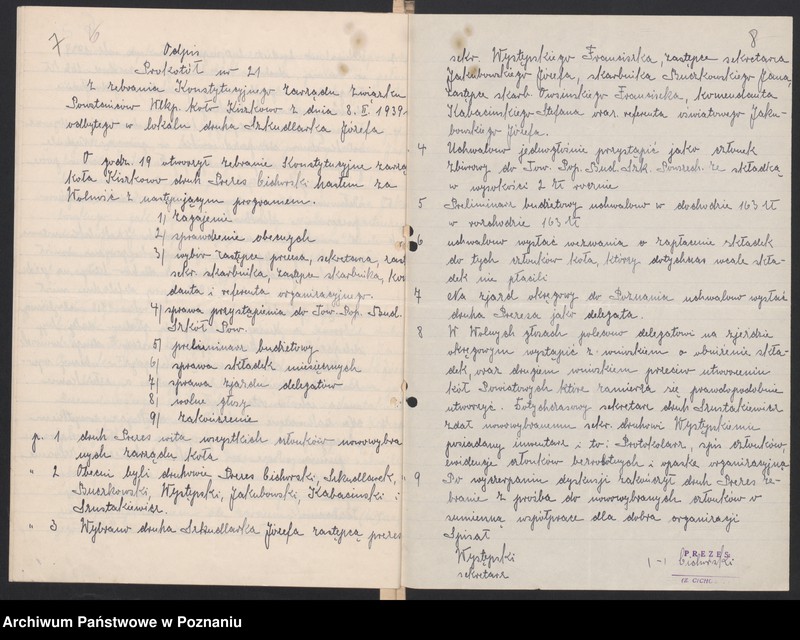 7
Odpis
Protokół nr 21
z zebrania Konstytucyjnego zarządu związku
Powstańców Wlkp. Koło Kiszkowo z dnia 8. II 1939
odbytego w lokalu druha Szkudlarka Józefa
O godz. 19 otworzył zebranie Konstytucyjne zarzą
koła Kiszkowo druh Prezes Cichorski hasłem za
Wolność z następującym programem.
1/ zagajenie
2/ sprawdzenie obecnych
3/ wybór zastępce prezesa, sekretarza, zast
sekr. skarbnika, zastępce skarbnika, ko
danta i referenta organizacyjnego.
4/ sprawa przystąpienia do Tow. Pop. Bud.
Szkół Pow.
5/ preliminarz budżetowy
6/ sprawa składek miesięcznych
7/ sprawa zjazdu delegatów
8/ wolne głosy
9/ zakończenie
p. 1 druh Prezes wita wszystkich członków nowowybra
nych zarządu koła
" 2 Obecni byli druhowie Prezes Cichorski, Szkudlarek,
Szuszkowski, Występski, Jakubowski, Kabaciński i
Szustakiewicz.
" 3 Wybrano druha Szkudlarka Józefa zastępcą prezes
8
sekr. Występskiego Franciszka, zastępce sekretarza
Jakubowskiego Józefa, skarbnika Szuszkowskiego Jana,
zastępce skarb. Franciszka, komendanta
Kabacinskiego Stefana oraz referenta oświatowego Jaku-
bowskiego Józefa.
4 Uchwalono jednogłośnie przystąpić jako członek
zbiorowy do Tow. Pop. Bud. Szk. Powszech. ze składką
w wysokości 2 zł rocznie
5 Preliminarz budżetowy uchwalono w dochodzie 163 zł
w rozchodzie 163 zł
6 uchwalono wysłać wezwania o zapłacenie składek
do tych członków koła, którzy dotychczas wcale skła-
dek nie płacili
7 Na zjazd okręgowy do Poznania uchwalono wysłać
druha Prezesa jako delegata.
8 W Wolnych głosach polecono delegatowi na zjeździe
okręgowym wystąpić z wnioskiem o obniżenie skła-
dek, oraz drugiem wnioskiem przeciw utworzeniu
kół Powiatowych które zamierza się prawdopodobnie
utworzyć. Dotychczasowy sekretarz druh Szustakiewicz
zdał nowowybranemu sekr. druhowi Występskiemu
posiadany inwentarz i to: Protokolarz, spis członków
ewidencje członków bezrobotnych i opaska organizacyjna
9 Po wyczerpaniu dyskusji zakończył druh Prezes ze-
branie z prośba do nowowybranych członków o
sumienną współprace dla dobra organizacji
Spisał
Występski
sekretarz
PREZES
/-/ Cichorski
Archiwum Państwowe w Poznaniu